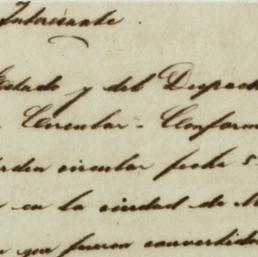 Interesante.
Estado y del Despach
Circular - Conform
orden circular fecha 5
en la ciudad de M
que fueron convertido